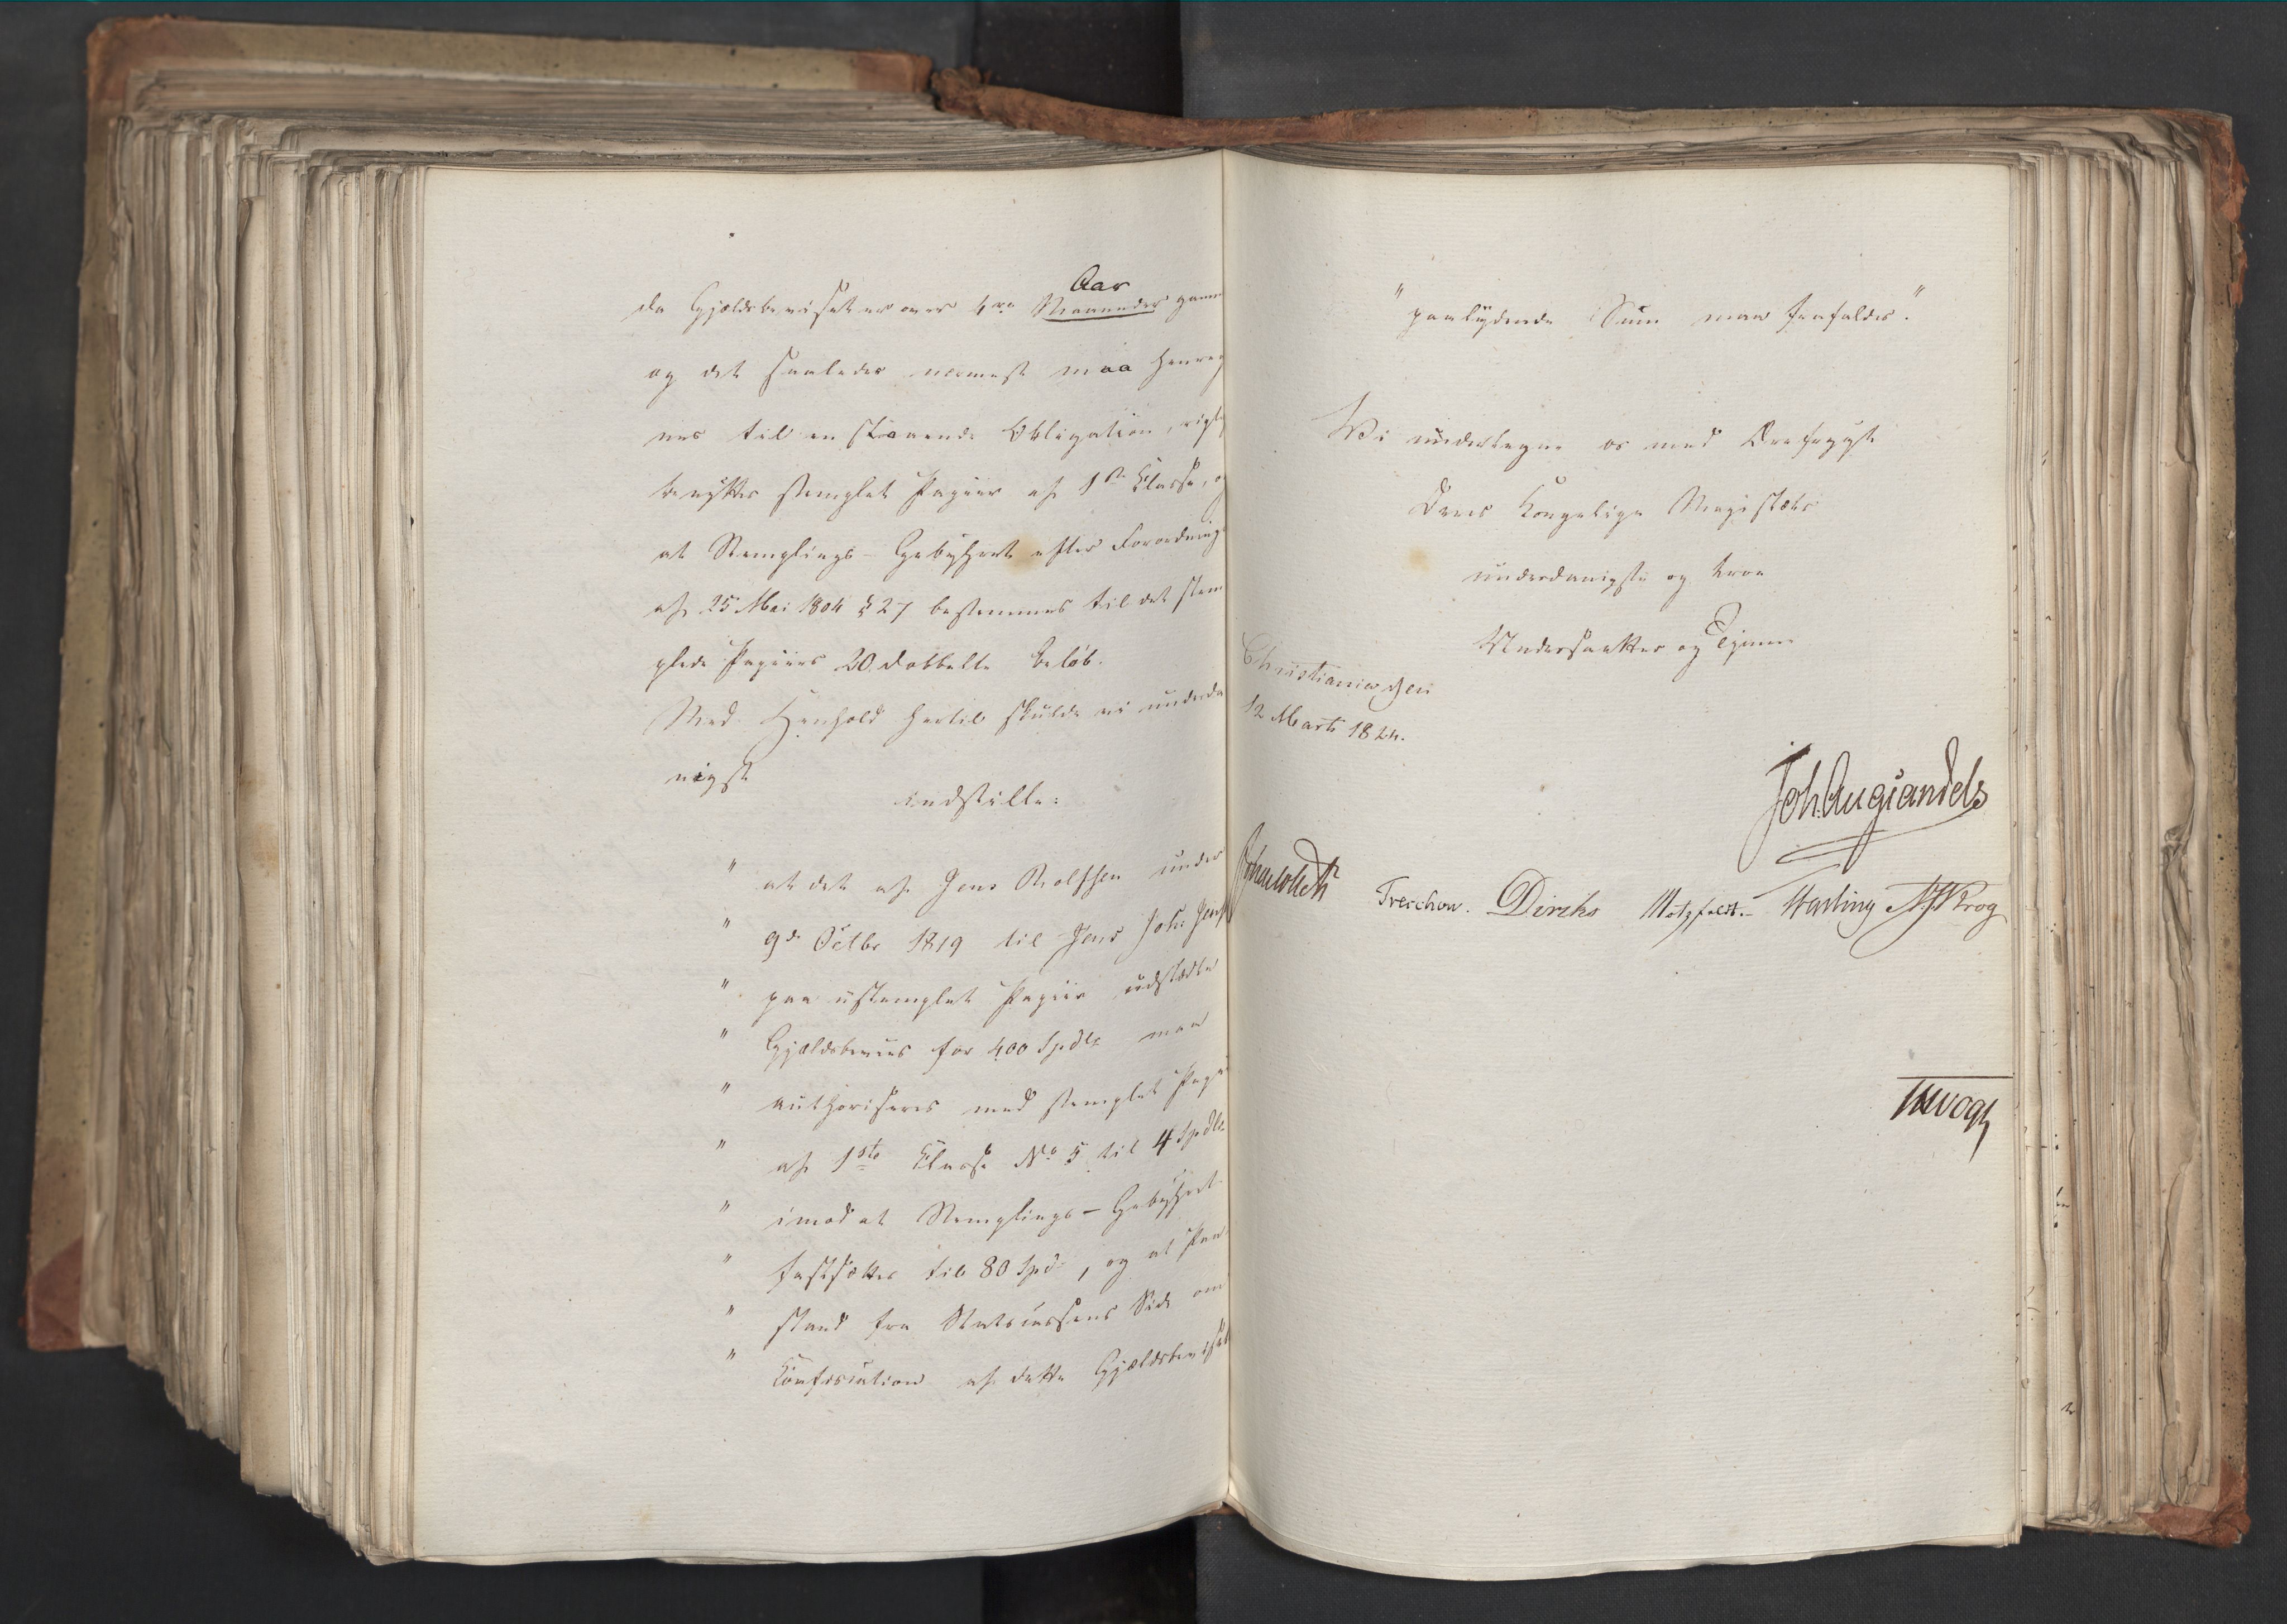 Aar
da Gjældsbeviset er over 4re Maaneder gam
og det saaledes nærmest maa henreg
nes til en staaende Obligation, rigtig
benyttes stemplet Papiir af 1ste Classe, og
at Stemplings-Gebyhret efter Forordning
af 25 Mai 1804 § 27 bestemmes til det stem
plede Papiirs 20 dobbelte Beløb.
Med Henhold hertil skulde vi underda
nigst
indstille:
" at det af Jens Rolfsen under
" 9de Octbr 1819 til Jens Joh: Jens
" paa ustemplet Papiir udstædte
" Gjældsbeviis for 400 Spdlr maa
" authoriseres med stemplet Papi
" af 1ste Classe No 5 til 4 Spdlr
" imod at Stemplings-Gebyhret
" fastsættes til 80 Spd:, og at Paa
" stand fra Statscassens Side om
" Confiscation af dette Gjældsbeviset
" paalydende Sum maa frafaldes."
Vi undertegne os med Ærefrygt
Deres Kongelige Majestæts
underdanigste og troe
Undersaatter og Tjenere
Christiania den
12 Marts 1824.
Joh: Aug: Sandels
Jonas Collett Treschow. Diriks Motzfeldt. Fasting A.S. Krog
Vogt